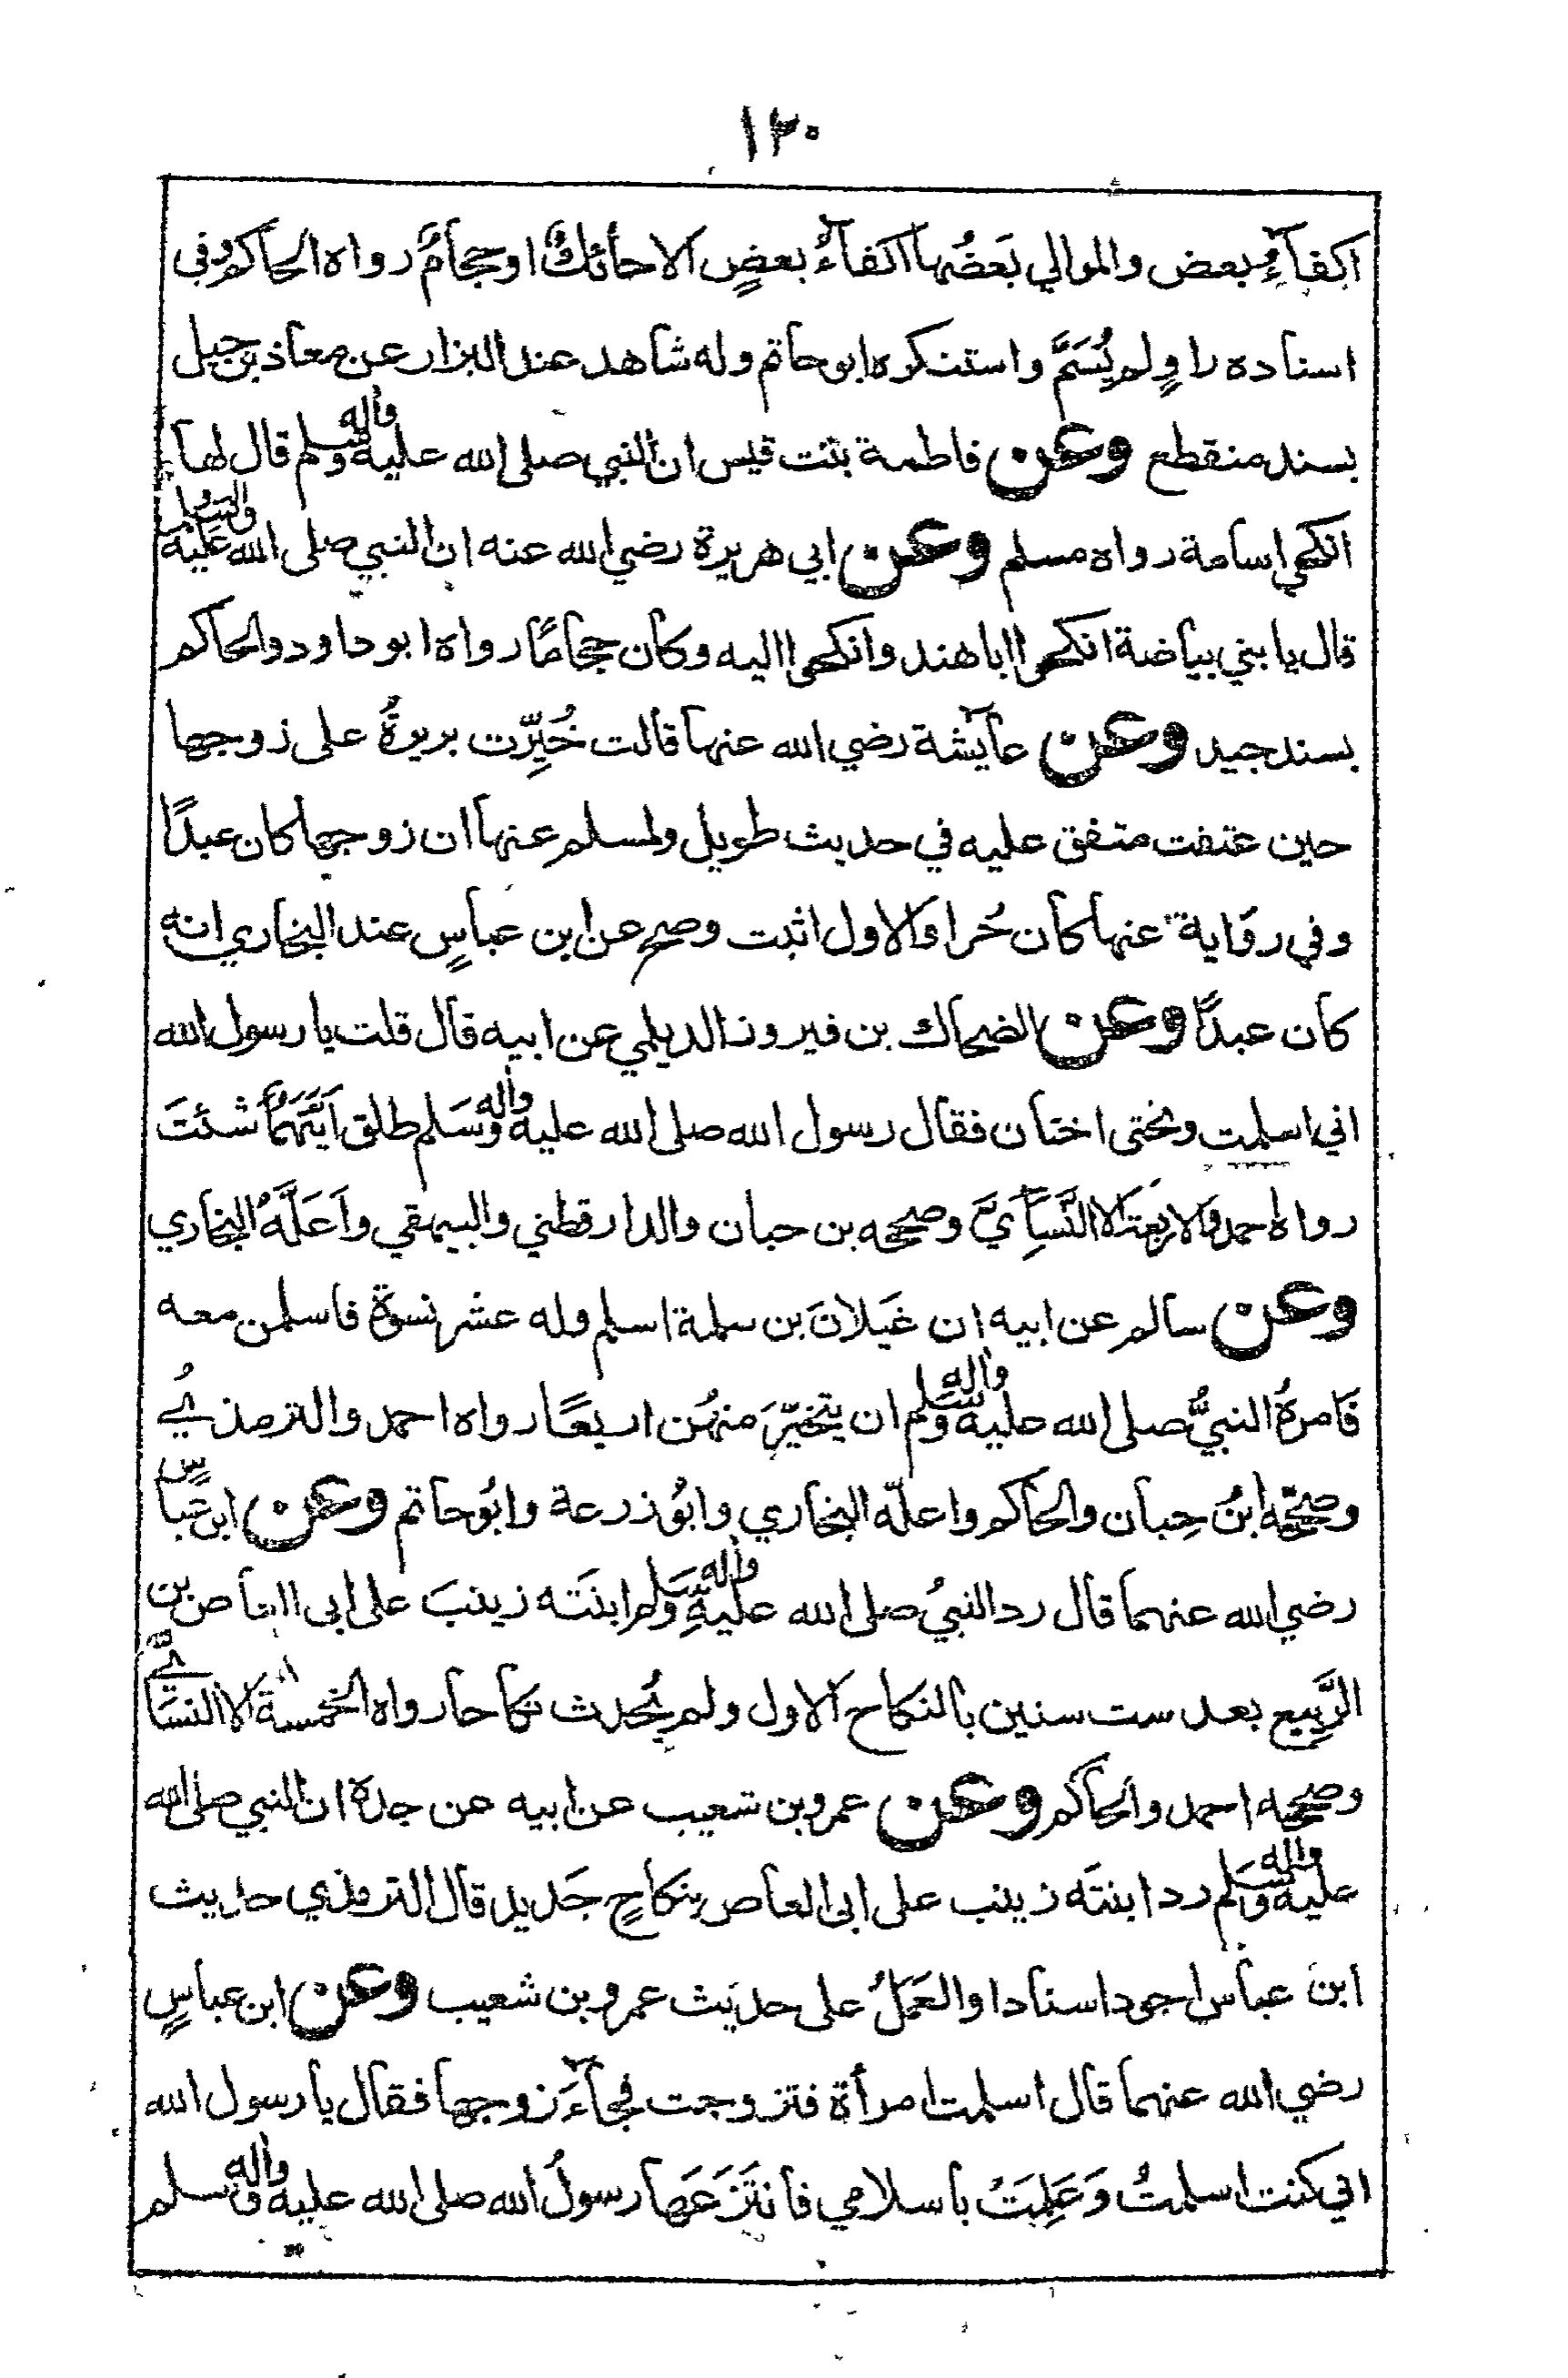 ١٣٠
اكفآءُ بعض والموالي بَعضُها اكفآءُ بعضٍ الا حأئك او حجامٌ رواه الحاكم وفي
اسناده راوٍ لم يُسَمَّ واستنكره ابو حاتم وله شاهد عند البزار عن معاذ بن جبل
بسند منقطع وعن فاطمة بنت قيس ان النبي صلى الله عليه واله وسلم قال لها
انكحي اسامة رواه مسلم وعن ابي هريرة رضي الله عنه ان النبي صلى الله عليه واله وسلم
قال يا بني بياضة انكحوا ابا هند وانكحوا اليه وكان حجامًا رواه ابو داود والحاكم
بسند جيد وعن عآيشة رضي الله عنها قالت خُيِّرت بريرةُ على زوجها
حين عتقت متفق عليه في حديث طويل ولمسلم عنها ان زوجها كان عبدًا
وفي روَاية عنها كان حُرا والاول اثبت وصح عن ابن عباسٍ عند البخاري انه
كان عبدًا وعن الضحاك بن فيروز الديلمي عن ابيه قال قلت يا رسول الله
اني اسلمت وتحتى اختان فقال رسول الله صلى الله عليه واله وسَلم طلق اَيَّتَهُمَا شئتَ
رواه احمد والاربعة الا النَّسآئيَّ وصححه بن حبان والدارقطني والبيهقي واَعَلَّهُ البخاري
وعن سالم عن ابيه ان غَيلانَ بن سلمة اسلم وله عشر نسوة فاسلمن معه
فَامرهُ النبيُّ صلى الله عليه واله وسلم ان يتخيّرَ منهُن اربعًا رواه احمد والترمذيُ
وصحّحه ابنُ حِبان والحاكم واعلّه البخاري وابُو زرعة وابُو حاتم وعن ابن عَباسٍ
رضي الله عنهما قال رد النبيُ صلى الله عليهِ واله وسَلم ابنَته زينبَ على ابى العاص بن
الرَّبِيع بعد ست سنين بالنكاح الاول ولم يُحدث نكاحا رواه الخمسة الا النسَائيَّ
وصححه احمد والحاكم وعن عمرو بن شعيب عن ابيه عن جده ان النبي صلى الله
عليه واله وسَلم رد ابنتَه زينب على ابى العاص بِنكاحٍ جَديد قال الترمذي حديث
ابن عباس اجود اسنادا والعَمَلُ على حديث عمرو بن شعيب وعن ابن عباسٍ
رضي الله عنهما قال اسلمت امرأة فتزوجت فجآءَ زوجها فقال يا رسول الله
اني كنت اسلمتُ وَعَلِمَتُ باسلامي فانتَزَعَها رسولُ الله صلى الله عليه واله وسلم